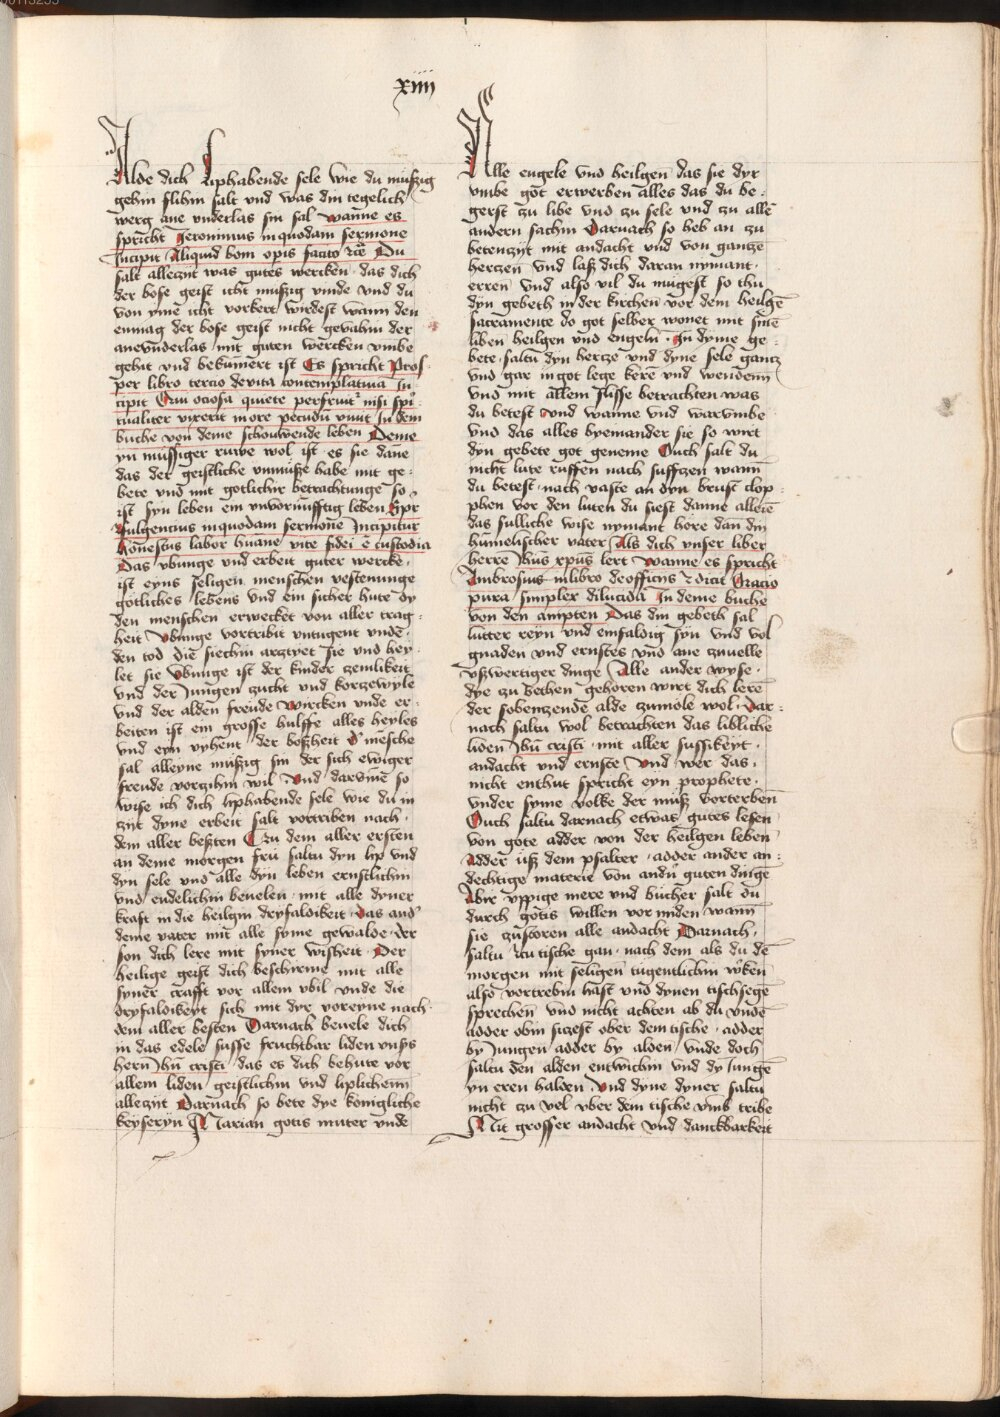 xiiij
Alde dich liphabende sele wie du mußzig
gehin flihin salt und was din tegelich
werg ane vnderlas sin sal wanne es
spricht Jeronimus in quodam sermone
Incipit Aliquid boni opis facito rc̄ē Du
salt alleczyt was gutes wercken das dich
der bose geist icht mußzig vinde vnd du
von yme icht vorkert wirdest wann den
enmag der bose geist nicht gevahin der
anevnderlas mit guten wercken vmbe
gehit vnd bekūmert ist Es spricht Pros
per libro tercio de vita contemplatiua in
cipit Qui ociosa quiete perfruit² nisi spi
ritualiter vixerit more pecudū viuit In dem
buche von deme schouwende leben Deme
yn mussiger ruwe wol ist es sie dāne
das der geistliche vnmuße habe mit ge
bete vnd mit gotlichir betrachtunge so
ist syn leben ein vnvornufftig leben Spr
fulgencius in quodam sermone Incipitur
honestus labor huane vite fidei ē custodia
Das vbunge vnd erbeit guter wercke
ist eyns seligen menschen vestenunge
gotliches lebens vnd ein sicher hute dy
den menschen erwecket von aller trag
heit vbunge vortribit vntugent vnde
den tod die siechin arcztyet sie vnd hey
let sie vbunge ist der kinder zemlikeit
vnd der Jungen zucht vnd korczewyle
vnd der alden freude wircken vnde er
beiten ist ein grosse hulffe alles heyles
vnd eyn vyhent der boßheit D' mēsche
sal alleyne mußzig sin der sich ewiger
freude vorzihin wil Vnd darvmē so
wise ich dich liphabende sele wie du in
zyt dyne erbeit salt vortriben nach
dem aller beßten Czu dem aller ersten
an deme morgen fru saltu dyn lip vnd
dyn sele vnd alle dyn leben ernstlichin
vnd endelichin beuelen mit alle dyner
kraft in die heilgin dryfaldikeit das and'
deme vater mit alle syme gewalde der
son dich lere mit syner wisheit Der
heilige geist dich beschirme mit alle
syner crafft vor allem vbil vnde die
dryfaldikeyt sich mit dyr voreyne nach
dem aller besten Darnach beuele dich
in das edele susse fruchtbar liden vnsers
hern Jhū cristi das es dich behute vor
allem liden geistlichin vnd liplichenn
alleczyt Darnach so bete dye konigliche
keyseryn Marian gotis muter vnde
Alle engele vnd heilgen das sie dyr
vmbe got erwerben alles das du be
gerst zu libe vnd zu sele vnd zu allē
andern sachin Darnach so heb an zu
betenzyt mit andacht vnd von gancze
herczen vnd laß dich daran nymant
erren vnd also vil du mugest so thu
dyn gebeth in der kirchen vor dem heilgē
sacramente do got selber wonet mit sinē
liben heilgen vnd engeln In dyme ge
bete saltu dyn hercze vnd dyne sele gancz
vnd gar in got lege kerē vnd wendenn
vnd mit allem flisse betrachten was
du betest vnd wanne vnd warvmbe
vnd das alles byemander sie so wirt
dyn gebete got geneme Ouch salt du
nicht lute ruffen nach sufftzen wann
du betest nach vaste an dyn brust clop
phen vor den luten du siest danne allene
das sulliche wise nymant hore dan din
hūmelischer vater Als dich vnser liber
herre Jhūs xpūs lert Wanne es spricht
Ambrosius in libro de officijs z dicit Oracio
pura simplex dilucida In deme buche
von den ampten Das din gebeth sal
lutter reyn vnd einfaldig syn vnd vol
gnaden vnd ernstes vnd ane zuuelle
vßwertiger dinge Alle ander wyse
dye zu bethen gehoren wirt dich lerē
der sobenzende alde zumole wol Dar
nach saltu wol betrachten das libliche
liden Jhū cristi mit aller sussikeyt
andacht vnd ernste Vnd wer das
nicht enthut spricht eyn prophete
vnder syme volke der muß vorterben
Ouch saltu darnach etwas gutes lesen
von gote adder von der heilgen leben
Adder uß dem psalter adder ander an
dechtige materie von andn guten dingē
Abir vppige mere vnd bucher salt du
durch gotis willen vor miden wann
sie zustoren alle andacht Darnach
saltu czu tische gan nach dem als du dē
morgen mit seligen tugentlichin w'ken
also vortrebin hast vnd dynen tischsegē
sprechen vnd nicht achten ab du vndē
adder obin siczest ober dem tische adder
by Jungen adder by alden vnde doch
saltu den alden entwichin vnd dy Jungē
yn eren halden Vnd dyne dyner saltu
nicht zu vel vber dem tische vmb tribe
Mit grosser andacht vnd danckbarkeit